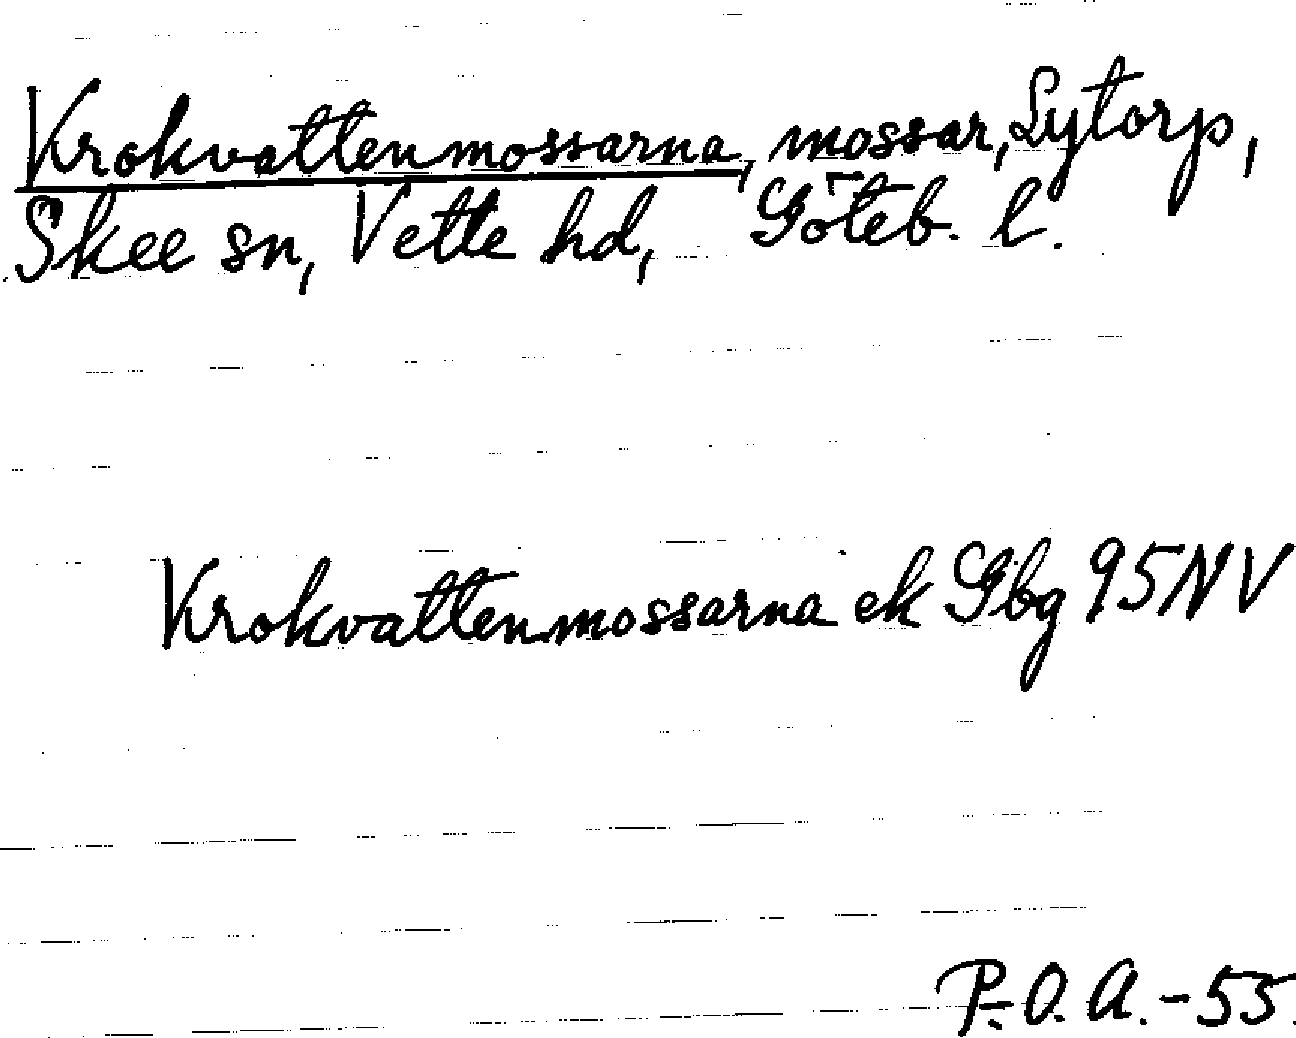 Krokvattenmossarna, mossar, Lytorp,
Skee sn, Vette hd, Göteb. l.
Krokvattenmossarna ek Gbg 95NV
P.-O. A. -55.